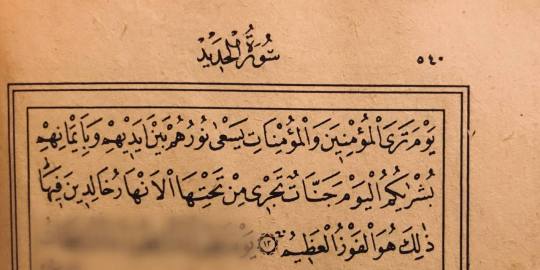 سُورَةُ الْحَدِيدِ
٥٤٠
يَوْمَ تَرَى الْمُؤْمِنِينَ وَالْمُؤْمِنَاتِ يَسْعٰى نُورُهُمْ بَيْنَ اَيْدِيهِمْ وَبِاَيْمَانِهِمْ
بُشْرٰيكُمُ الْيَوْمَ جَنَّاتٌ تَجْرِى مِنْ تَحْتِهَا الْاَنْهَارُ خَالِدِينَ فِيهَا
ذٰلِكَ هُوَ الْفَوْزُ الْعَظِيمُ ١٢